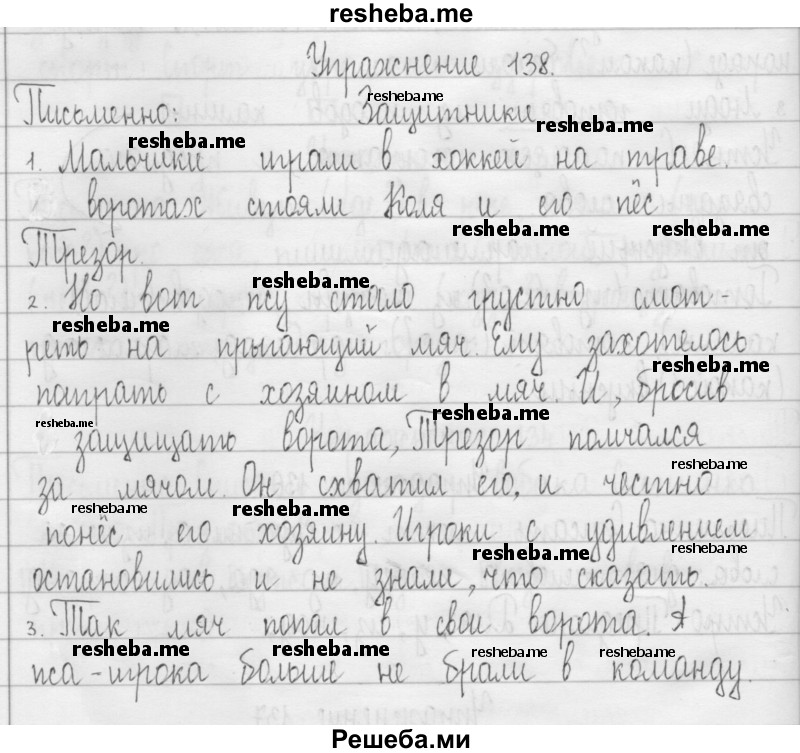 resheba.me
Упражнение 138.
Письменно: Защитники
resheba.me
resheba.me resheba.me
1. Мальчики играли в хоккей на траве.
воротах стояли Коля и его пёс
resheba.me resheba.me
Трезор.
resheba.me
2. Но вот псу стало грустно смот-
resheba.me
реть на прыгающий мяч. Ему захотелось
resheba.me
поиграть с хозяином в мяч. И, бросив
resheba.me resheba.me
защищать ворота, Трезор помчался
resheba.me
за мячом. Он схватил его, и честно
resheba.me resheba.me
понёс его хозяину. Игроки с удивлением
resheba.me resheba.me
остановились и не знали, что сказать.
3. Так мяч попал в свои ворота. А
resheba.me resheba.me resheba.me
пса-игрока больше не брали в команду.
Решеба.ми